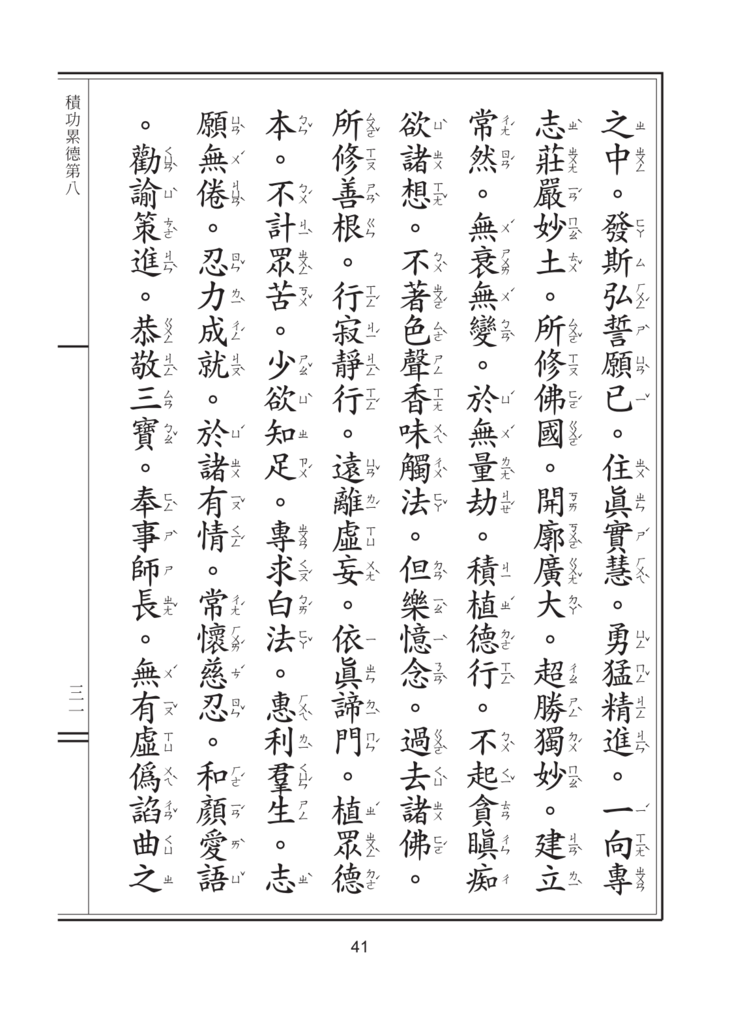 之中。發斯弘誓願已。住眞實慧。勇猛精進。一向專
志莊嚴妙土。所修佛國。開廓廣大。超勝獨妙。建立
常然。無衰無變。於無量劫。積植德行。不起貪瞋痴
欲諸想。不著色聲香味觸法。但樂憶念。過去諸佛。
所修善根。行寂靜行。遠離虛妄。依眞諦門。植眾德
本。不計眾苦。少欲知足。專求白法。惠利羣生。志
願無倦。忍力成就。於諸有情。常懷慈忍。和顏愛語
。勸諭策進。恭敬三寶。奉事師長。無有虛偽諂曲之
積功累德第八
三一
41